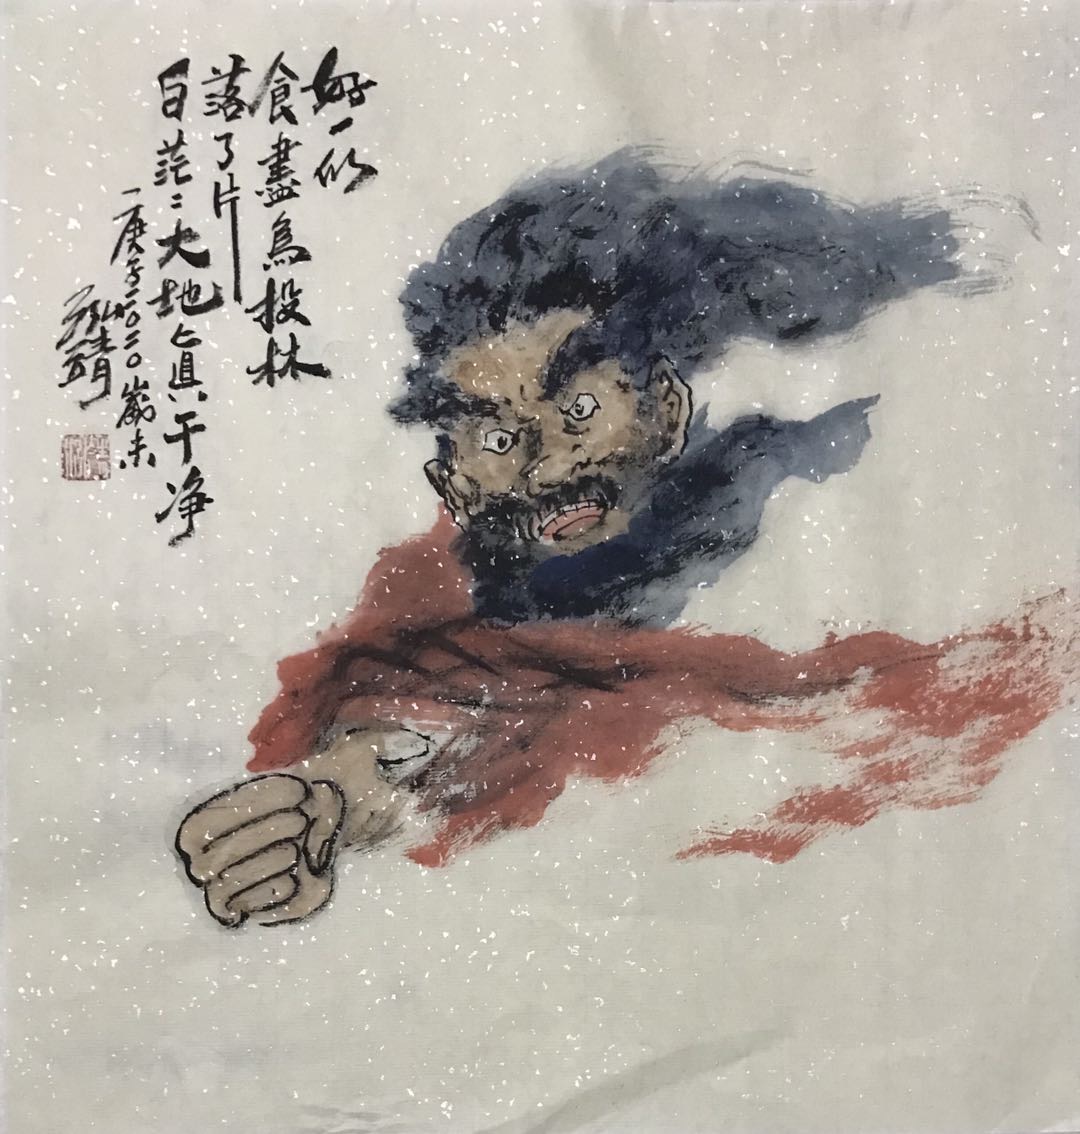 好一似
食盡鳥投林
落了片
白茫〻大地眞干净
庚子二〇二〇歲末